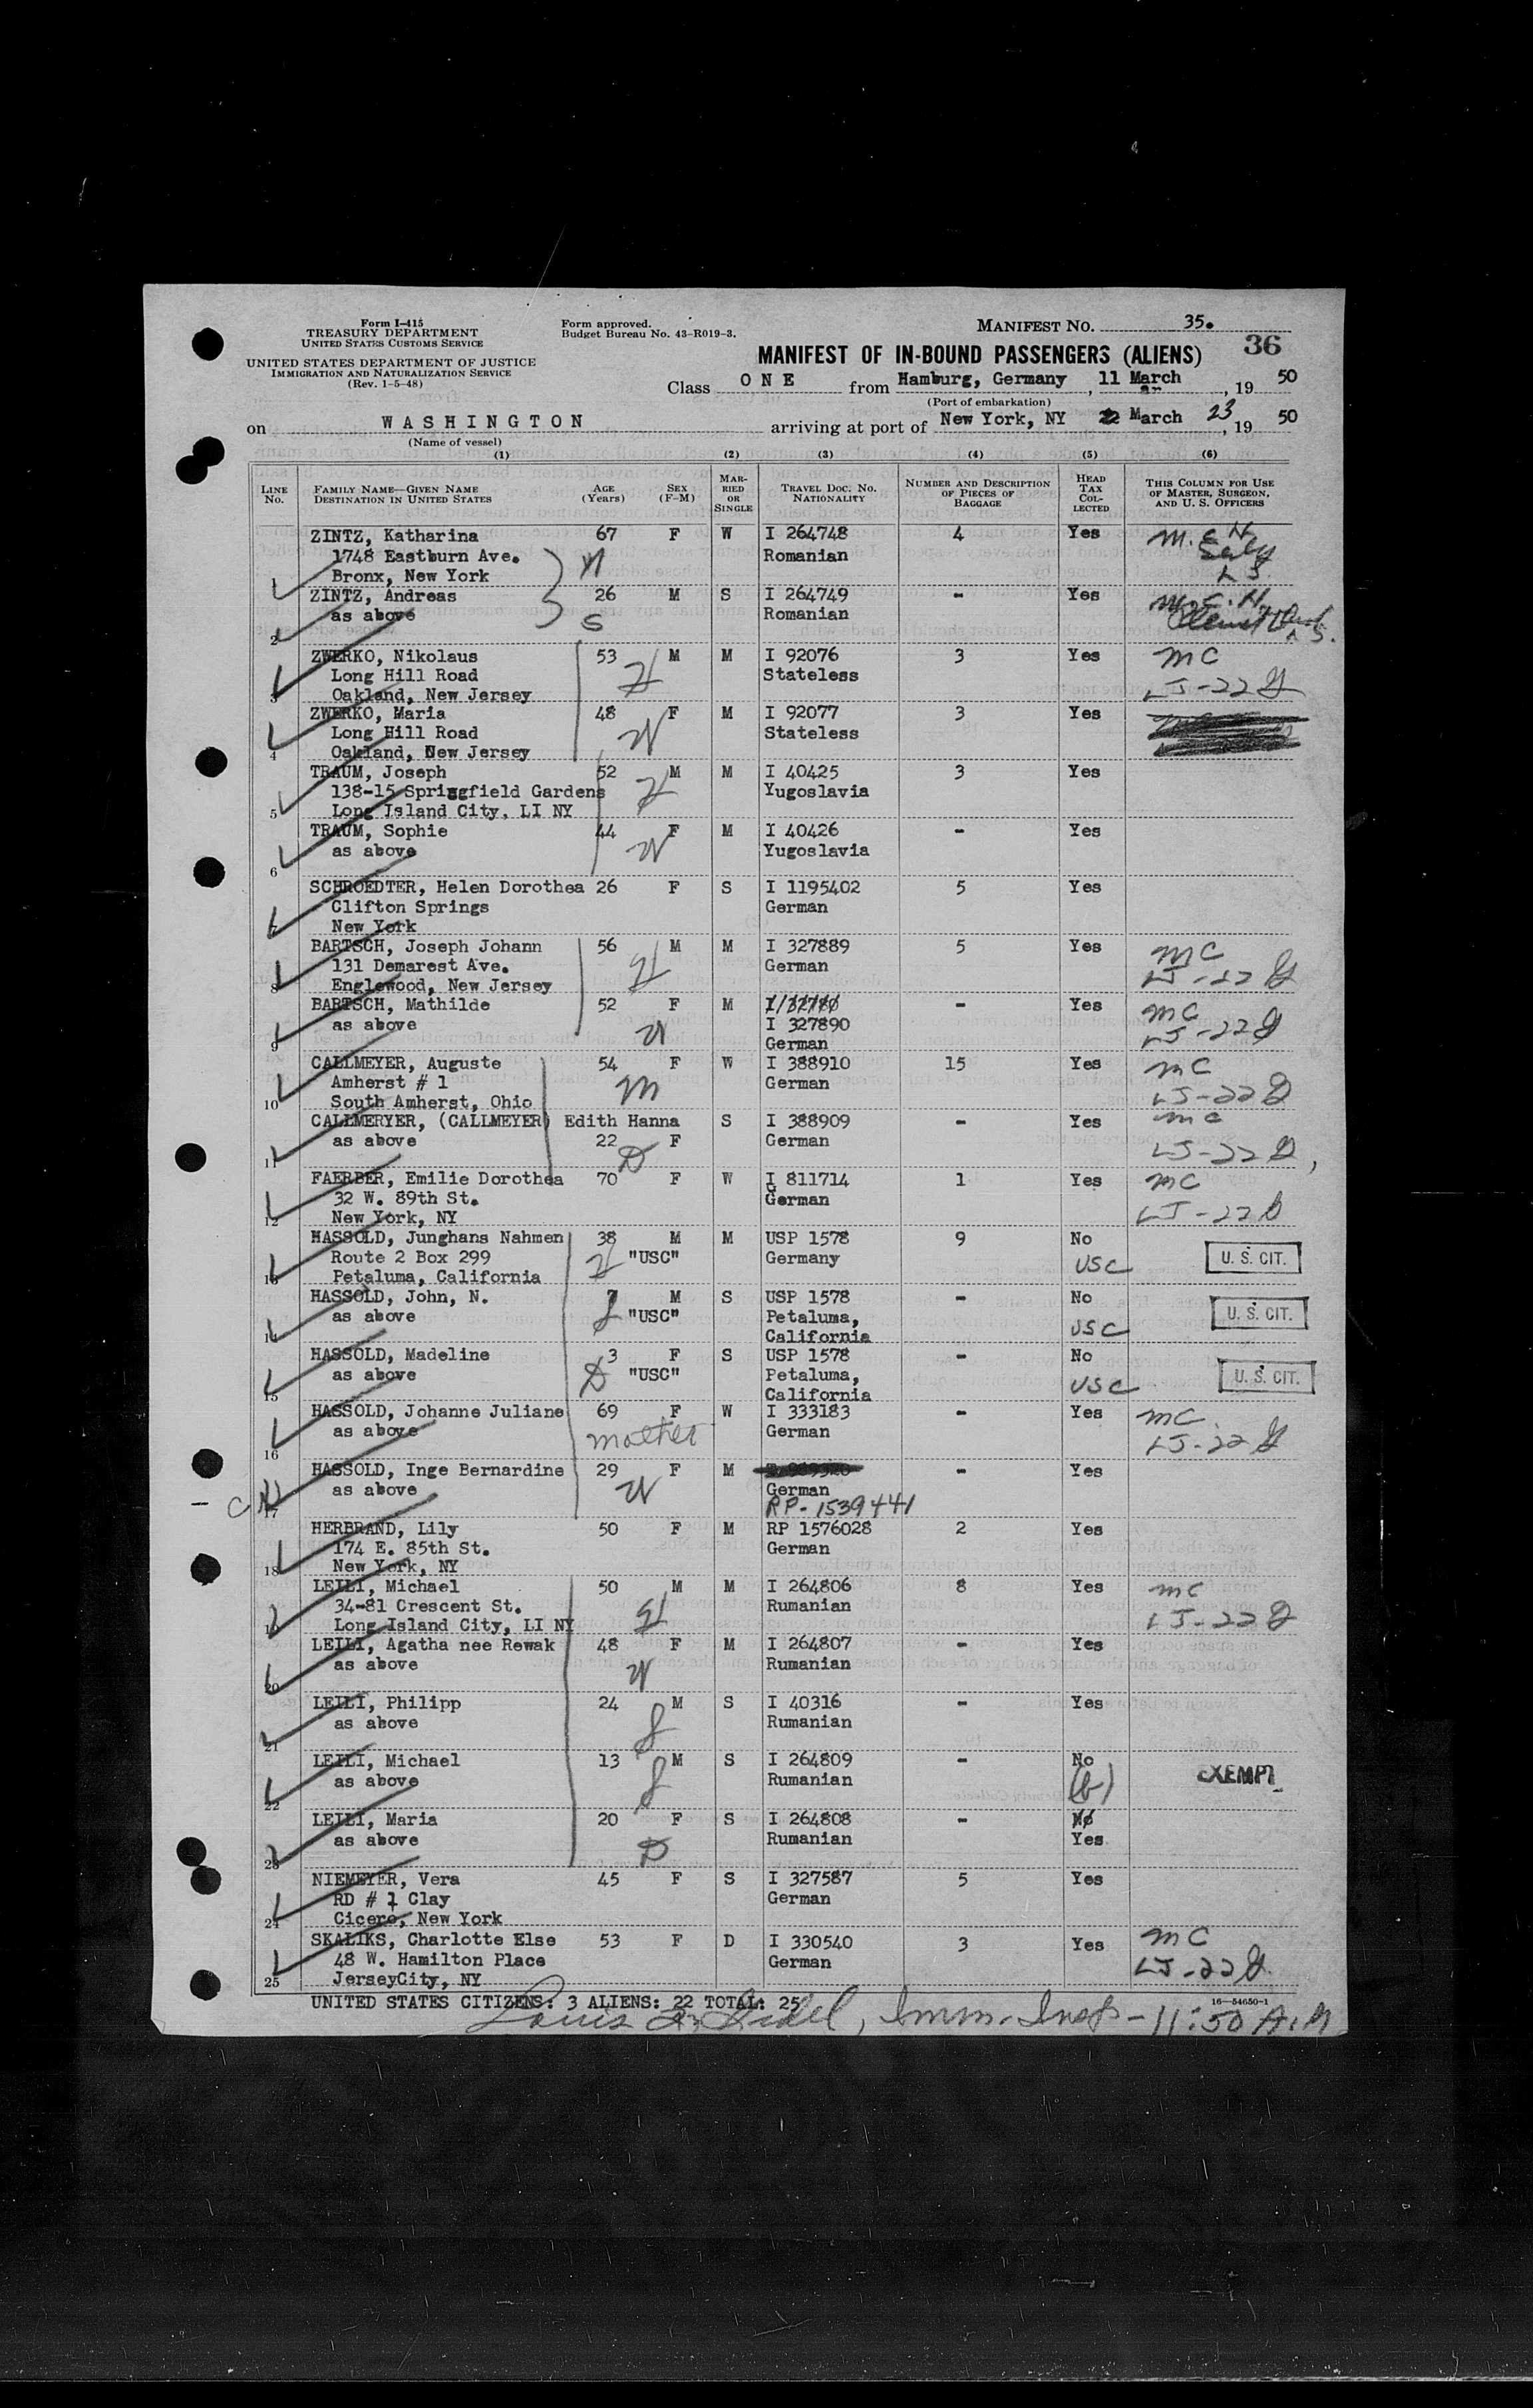 Form I-415
TREASURY DEPARTMENT
UNITED STATES CUSTOMS SERVICE
UNITED STATES DEPARTMENT OF JUSTICE
IMMIGRATION AND NATURALIZATION SERVICE
(Rev. 1-5-48)
Form approved.
Budget Bureau No. 43-R019-3.
MANIFEST NO. 35.
36
MANIFEST OF IN-BOUND PASSENGERS (ALIENS)
Class O N E from Hamburg, Germany, 11 March, 19 50
(Port of embarkation)
on W A S H I N G T O N arriving at port of New York, NY March 23, 19 50
(Name of vessel)
(1) (2) (3) (4) (5) (6)
LINE No. FAMILY NAME—GIVEN NAME DESTINATION IN UNITED STATES AGE (Years) SEX (F-M) MARRIED OR SINGLE TRAVEL DOC. NO. NATIONALITY NUMBER AND DESCRIPTION OF PIECES OF BAGGAGE HEAD TAX COLLECTED THIS COLUMN FOR USE OF MASTER, SURGEON, AND U. S. OFFICERS
ZINTZ, Katharina 67 F W I 264748 4 Yes
1748 Eastburn Ave. Romanian
Bronx, New York
ZINTZ, Andreas 26 M S I 264749 - Yes
as above S Romanian
2
ZWERKO, Nikolaus 53 M M I 92076 3 Yes MC
Long Hill Road H Stateless
3 Oakland, New Jersey LJ-22
ZWERKO, Maria 48 F M I 92077 3 Yes
Long Hill Road W Stateless
4 Oakland, New Jersey
TRAUM, Joseph 52 M M I 40425 3 Yes
138-15 Springfield Gardens H Yugoslavia
5 Long Island City, LI NY
TRAUM, Sophie 44 F M I 40426 - Yes
as above W Yugoslavia
6
SCHROEDTER, Helen Dorothea 26 F S I 1195402 5 Yes
Clifton Springs German
7 New York
BARTSCH, Joseph Johann 56 M M I 327889 5 Yes MC
131 Demarest Ave. H German
8 Englewood, New Jersey LJ-22
BARTSCH, Mathilde 52 F M - Yes MC
as above W I 327890 LJ-22
9 German
CALLMEYER, Auguste 54 F W I 388910 15 Yes MC
Amherst # 1 M German
10 South Amherst, Ohio LJ-22
CALLMERYER, (CALLMEYER) Edith Hanna S I 388909 - Yes MC
as above 22 F German
11 D LJ-22
FAERBER, Emilie Dorothea 70 F W I 811714 1 Yes MC
32 W. 89th St. German
12 New York, NY LJ-22
HASSOLD, Junghans Nahmen 38 M M USP 1578 9 No
Route 2 Box 299 H "USC" Germany USC U. S. CIT.
13 Petaluma, California
HASSOLD, John, N. 7 M S USP 1578 - No
as above "USC" Petaluma, USC U. S. CIT.
14 California
HASSOLD, Madeline 3 F S USP 1578 - No
as above D "USC" Petaluma, USC U. S. CIT.
15 California
HASSOLD, Johanne Juliane 69 F W I 333183 - Yes MC
as above mother German LJ-22
16
HASSOLD, Inge Bernardine 29 F M - Yes
as above W German
17 RP-1539441
HERBRAND, Lily 50 F M RP 1576028 2 Yes
174 E. 85th St. German
18 New York, NY
LEILI, Michael 50 M M I 264806 8 Yes MC
34-81 Crescent St. H Rumanian LJ-22
19 Long Island City, LI NY
LEILI, Agatha nee Rewak 48 F M I 264807 - Yes
as above W Rumanian
20
LEILI, Philipp 24 M S I 40316 - Yes
as above Rumanian
21
LEILI, Michael 13 M S I 264809 - No
as above Rumanian (b) EXEMPT
22
LEILI, Maria 20 F S I 264808 - No
as above D Rumanian Yes
23
NIEMEYER, Vera 45 F S I 327587 5 Yes
RD # 1 Clay German
24 Cicero, New York
SKALIKS, Charlotte Else 53 F D I 330540 3 Yes MC
48 W. Hamilton Place German LJ-22
25 JerseyCity, NY
UNITED STATES CITIZENS: 3 ALIENS: 22 TOTAL: 25
16—54650-1
Louis Imm. Insp - 11:50 A.M